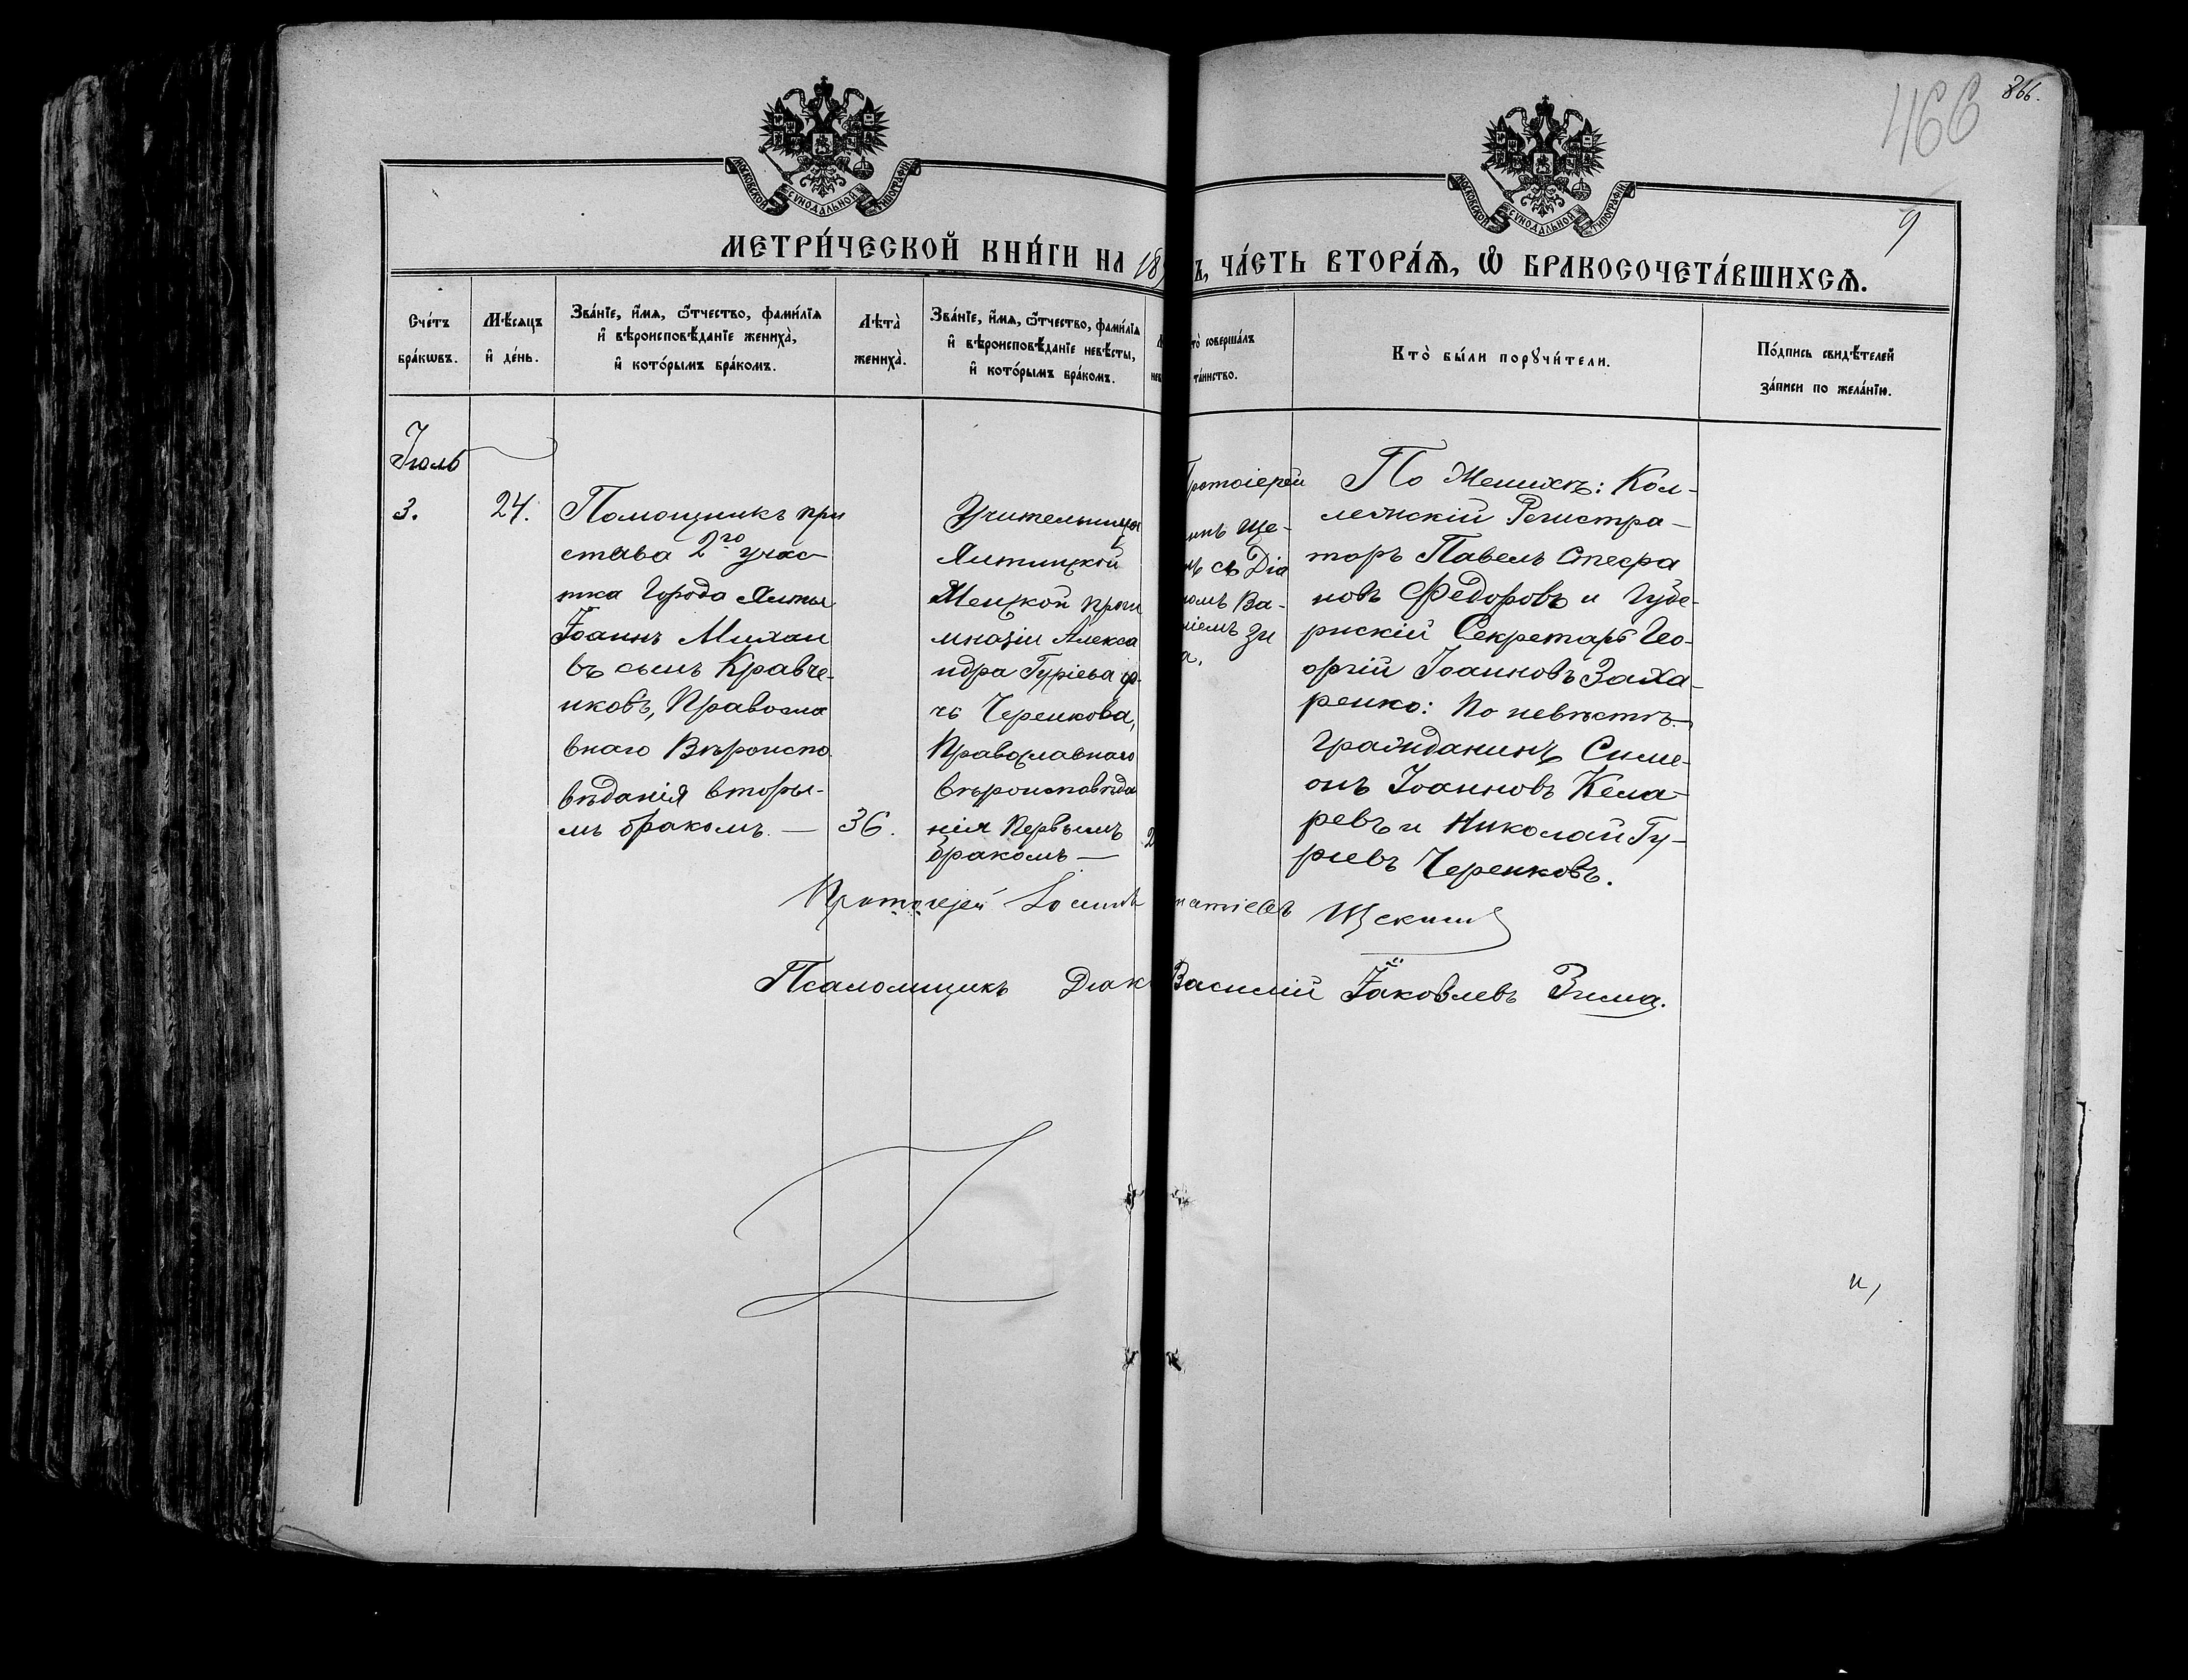 466
366.
МОСКОВСКОЙ СѴНОДАЛЬНОЙ ТИПОГРАФІИ
МОСКОВСКОЙ СѴНОДАЛЬНОЙ ТИПОГРАФІИ
9
МЕТРИ́ЧЕСКОЙ КНИ́ГИ НА 18
Ъ, ЧА́СТЬ ВТОРА́Ѧ, Ѽ БРАКОСОЧЕТА́ВШИХСѦ.
Сче́тъ
бра́кѡвъ.
Мѣ́сяцъ
и҆ де́нь.
Зва́нїе, и҆́мѧ, ѿтчество, фами́лїѧ
и҆ вѣроисповѣ́данїе жениха̀,
и҆ кото́рымъ бра́комъ.
Лѣта̀
жениха̀.
Зва́нїе, и҆́мѧ, ѿтчество, фами́лїѧ
и҆ вѣроисповѣ́данїе невѣ́сты,
и҆ кото́рымъ бра́комъ.
то̀ соверша́лъ
та́инство.
Кто̀ бы́ли порꙋчи́тели.
По́дпись свидѣ́телей
за́писи по жела́нїю.
Іюль
3.
24.
Помощникъ при
става 2го учас
тка Города Ялты
Іоаннъ Михаи
въ сынъ Кравче-
нковъ, Правосла
внаго Вѣроиспо
вѣданія вторы-
мъ бракомъ. —
36.
Учительница
Ялтинской
Женской проги
мназіи Алекса
ндра Гуріева до-
чь Черенкова,
Православнаго
вѣроисповѣда
нія первымъ
бракомъ —
2
Протоіерей
инъ Ще-
нъ съ Діа
номъ Ва-
ліемъ Зи
а.
По Женихѣ: Кол-
лежскій Регистра-
торъ Павелъ Спера
новъ Федоровъ и Губе-
рнскій Секретарь Гео-
оргій Іоанновъ Заха-
ренко: По невѣстѣ
гражданинъ Симе-
онъ Іоанновъ Кела-
ревъ и Николай Гу-
ріевъ Черенковъ.
Протоіерей Іоаннъ Щекинъ
Псаломщикъ Діак Василій Іаковлевъ Зима.